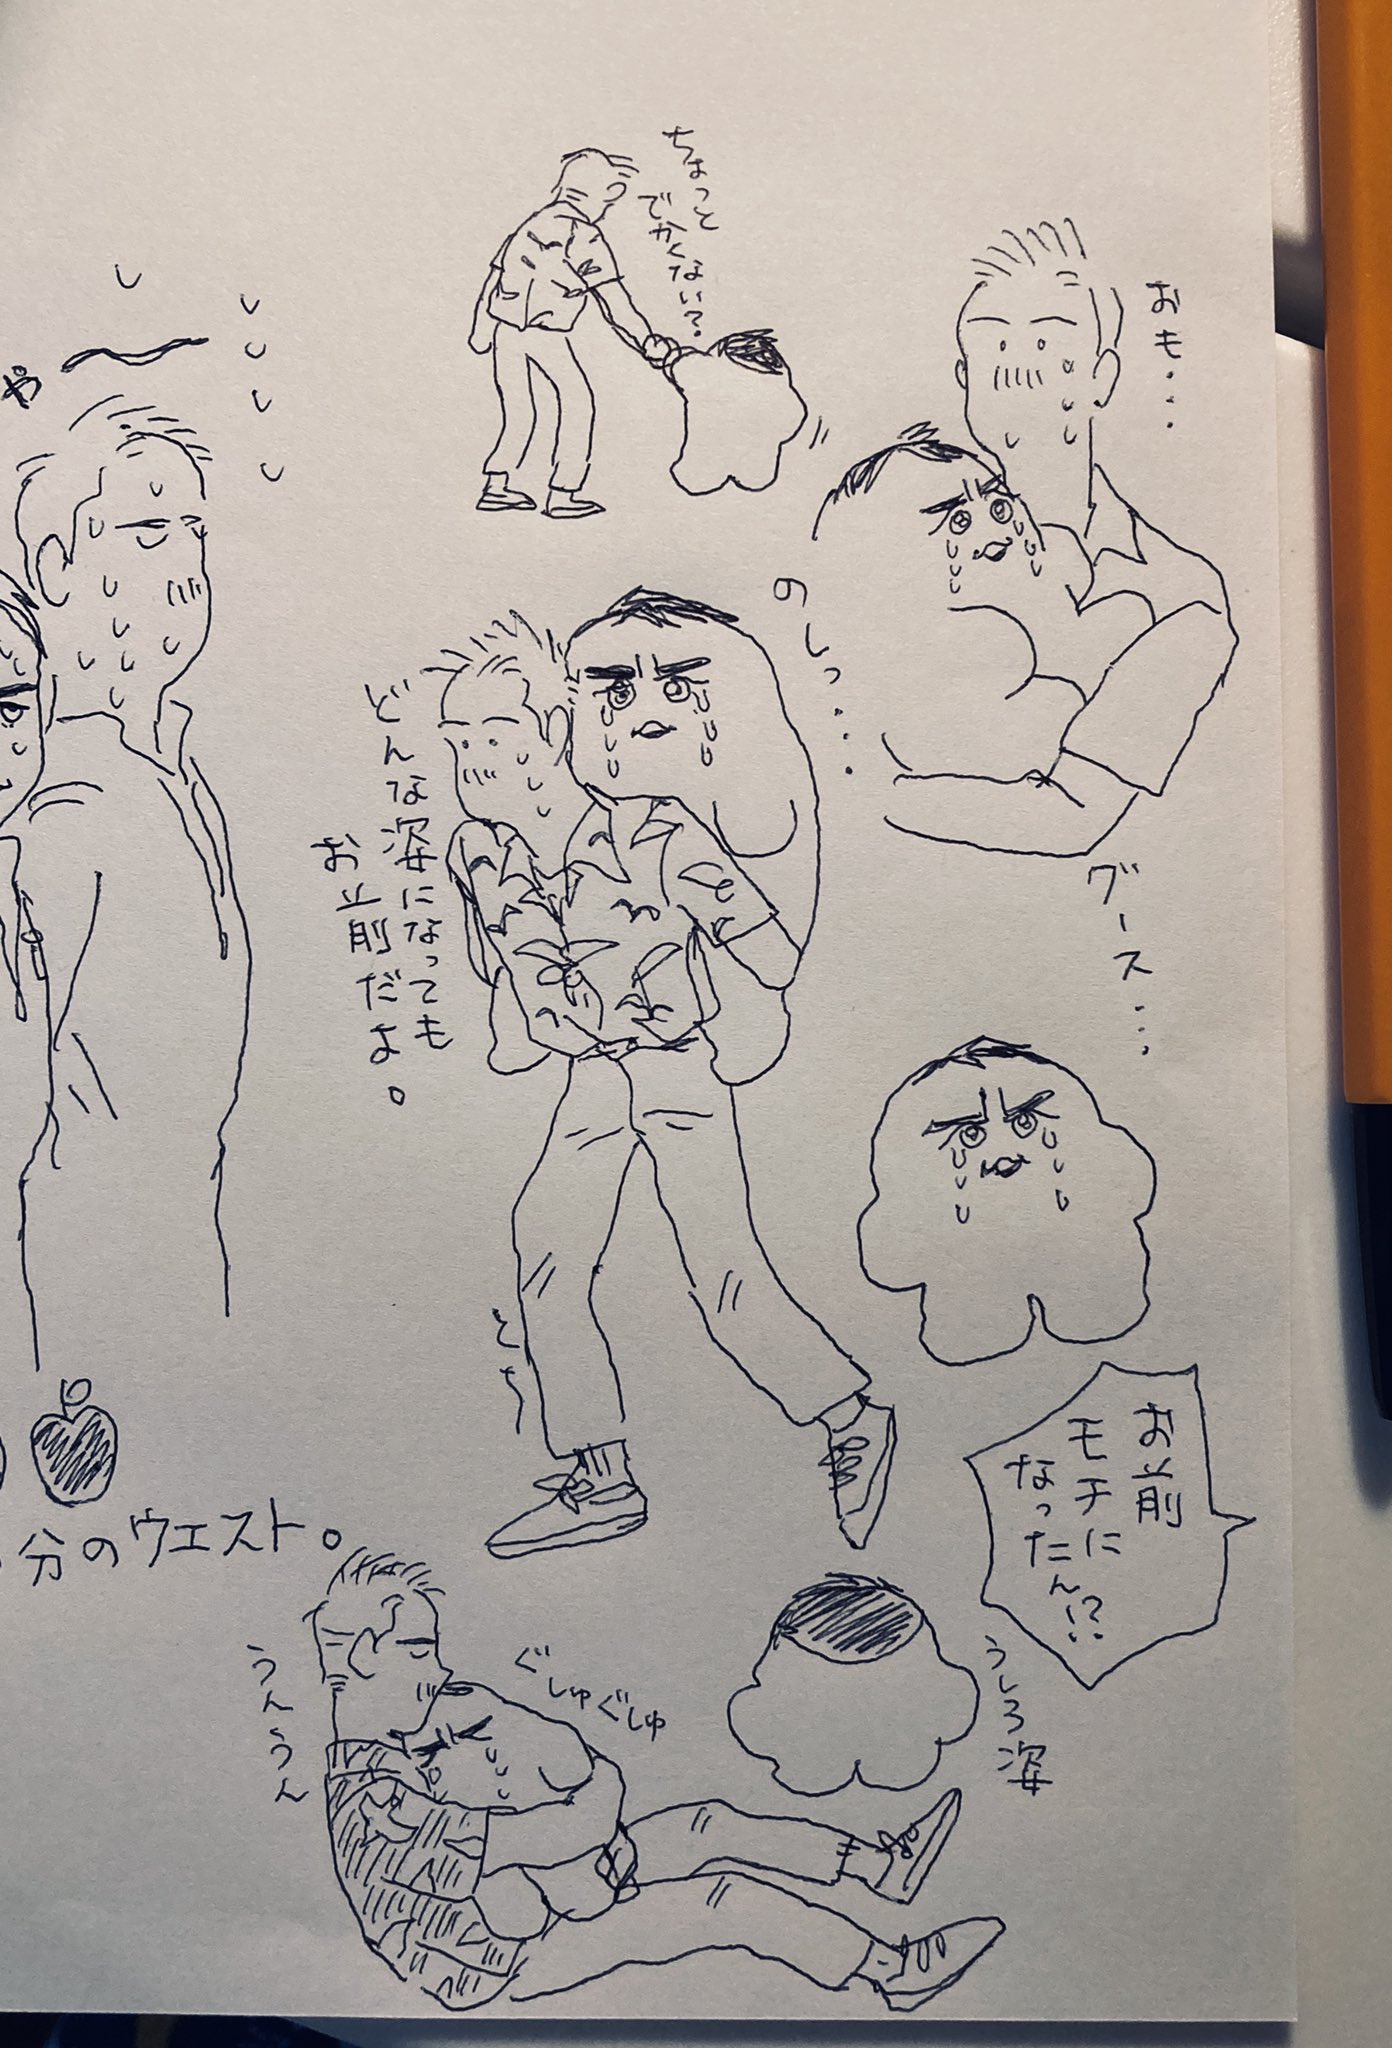 ちょっと
でかくない?
おも・・・
や
のしっ・・・
どんな姿になっても
お前だよ。
グース・・・
とち
お前
モチに
なったん!?
分のウエスト。
うしろ姿
ぐしゅぐしゅ
うんうん